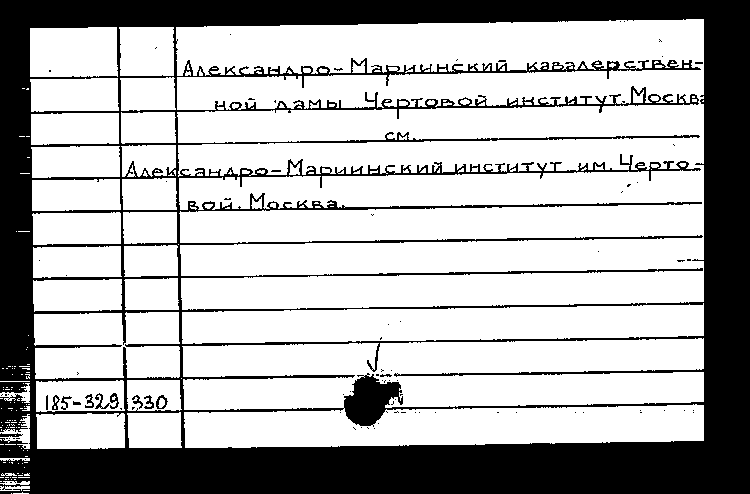 Александро-Мариинский кавалерствен-
ной дамы Чертовой институт. Москва
см.
Александро-Мариинский институт им. Черто-
вой. Москва.
185-329 330